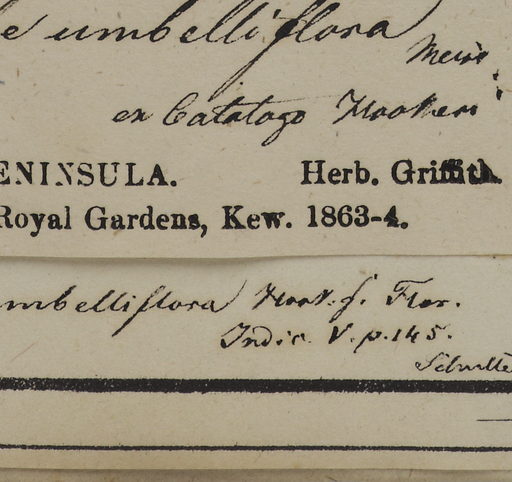 e umbelliflora
Meisn
ex Catalogo Hookeri
ENINSULA. Herb. Griffith.
Royal Gardens, Kew. 1863-4.
mbelliflora Hook. f. Flor.
Indic. V. p. 145.